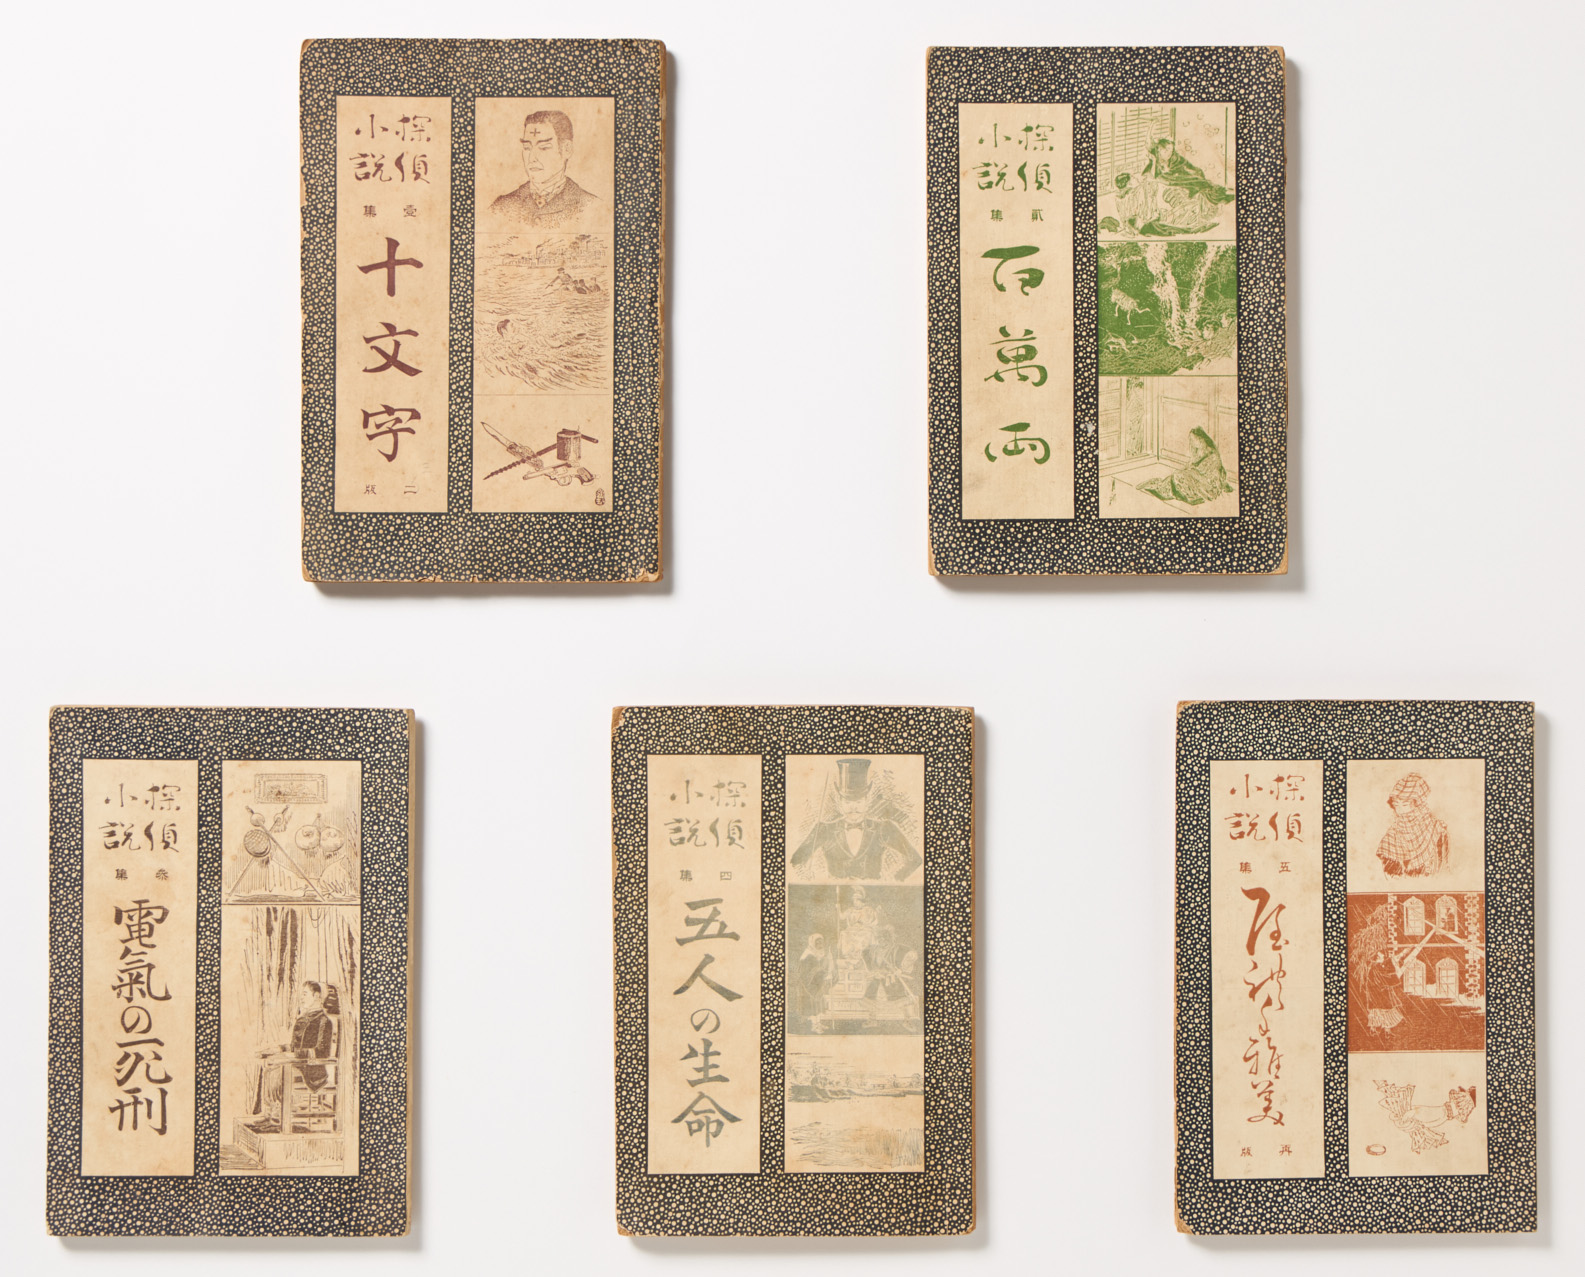 探偵
小説
壹集
十文字
二版
探偵
小説
貳集
百萬両
探偵
小説
參集
電氣の死刑
探偵
小説
四集
五人の生命
探偵
小説
五集
雅美
再版